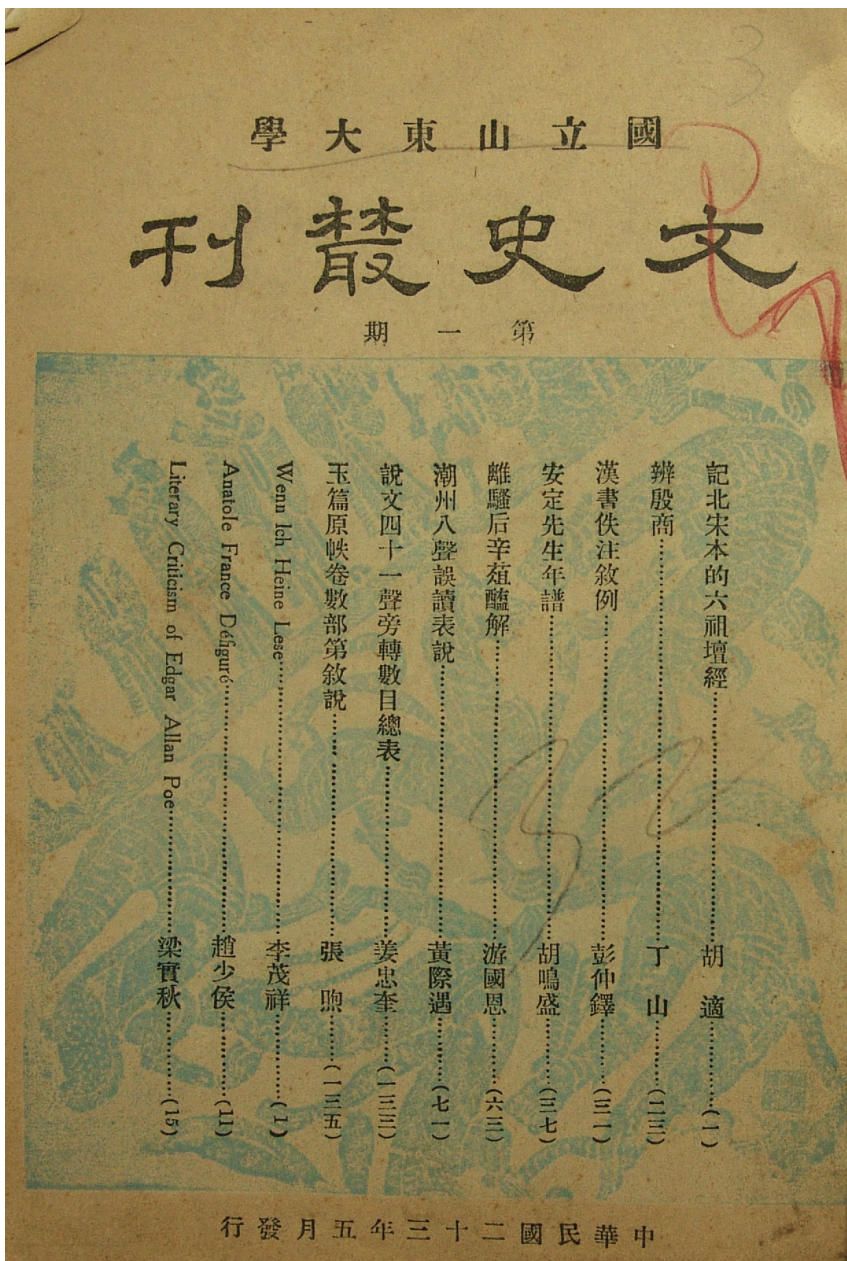 國立山東大學
文史叢刊
第一期
記北宋本的六祖壇經……胡適……(一)
辨殷商……丁山……(二三)
漢書佚注敘例……彭仲鐸……(三一)
安定先生年譜……胡鳴盛……(三七)
離騷后辛菹醢解……游國恩……(六三)
潮州八聲誤讀表說……黃際遇……(七一)
說文四十一聲旁轉數目總表……姜忠奎……(一三三)
玉篇原帙卷數部第敘說……張煦……(一三五)
Wenn Ich Heine Lese……李茂祥……(1)
Anatole France Défiguré……趙少侯……(11)
Literary Criticism of Edgar Allan Poe……梁實秋……(15)
中華民國二十三年五月發行